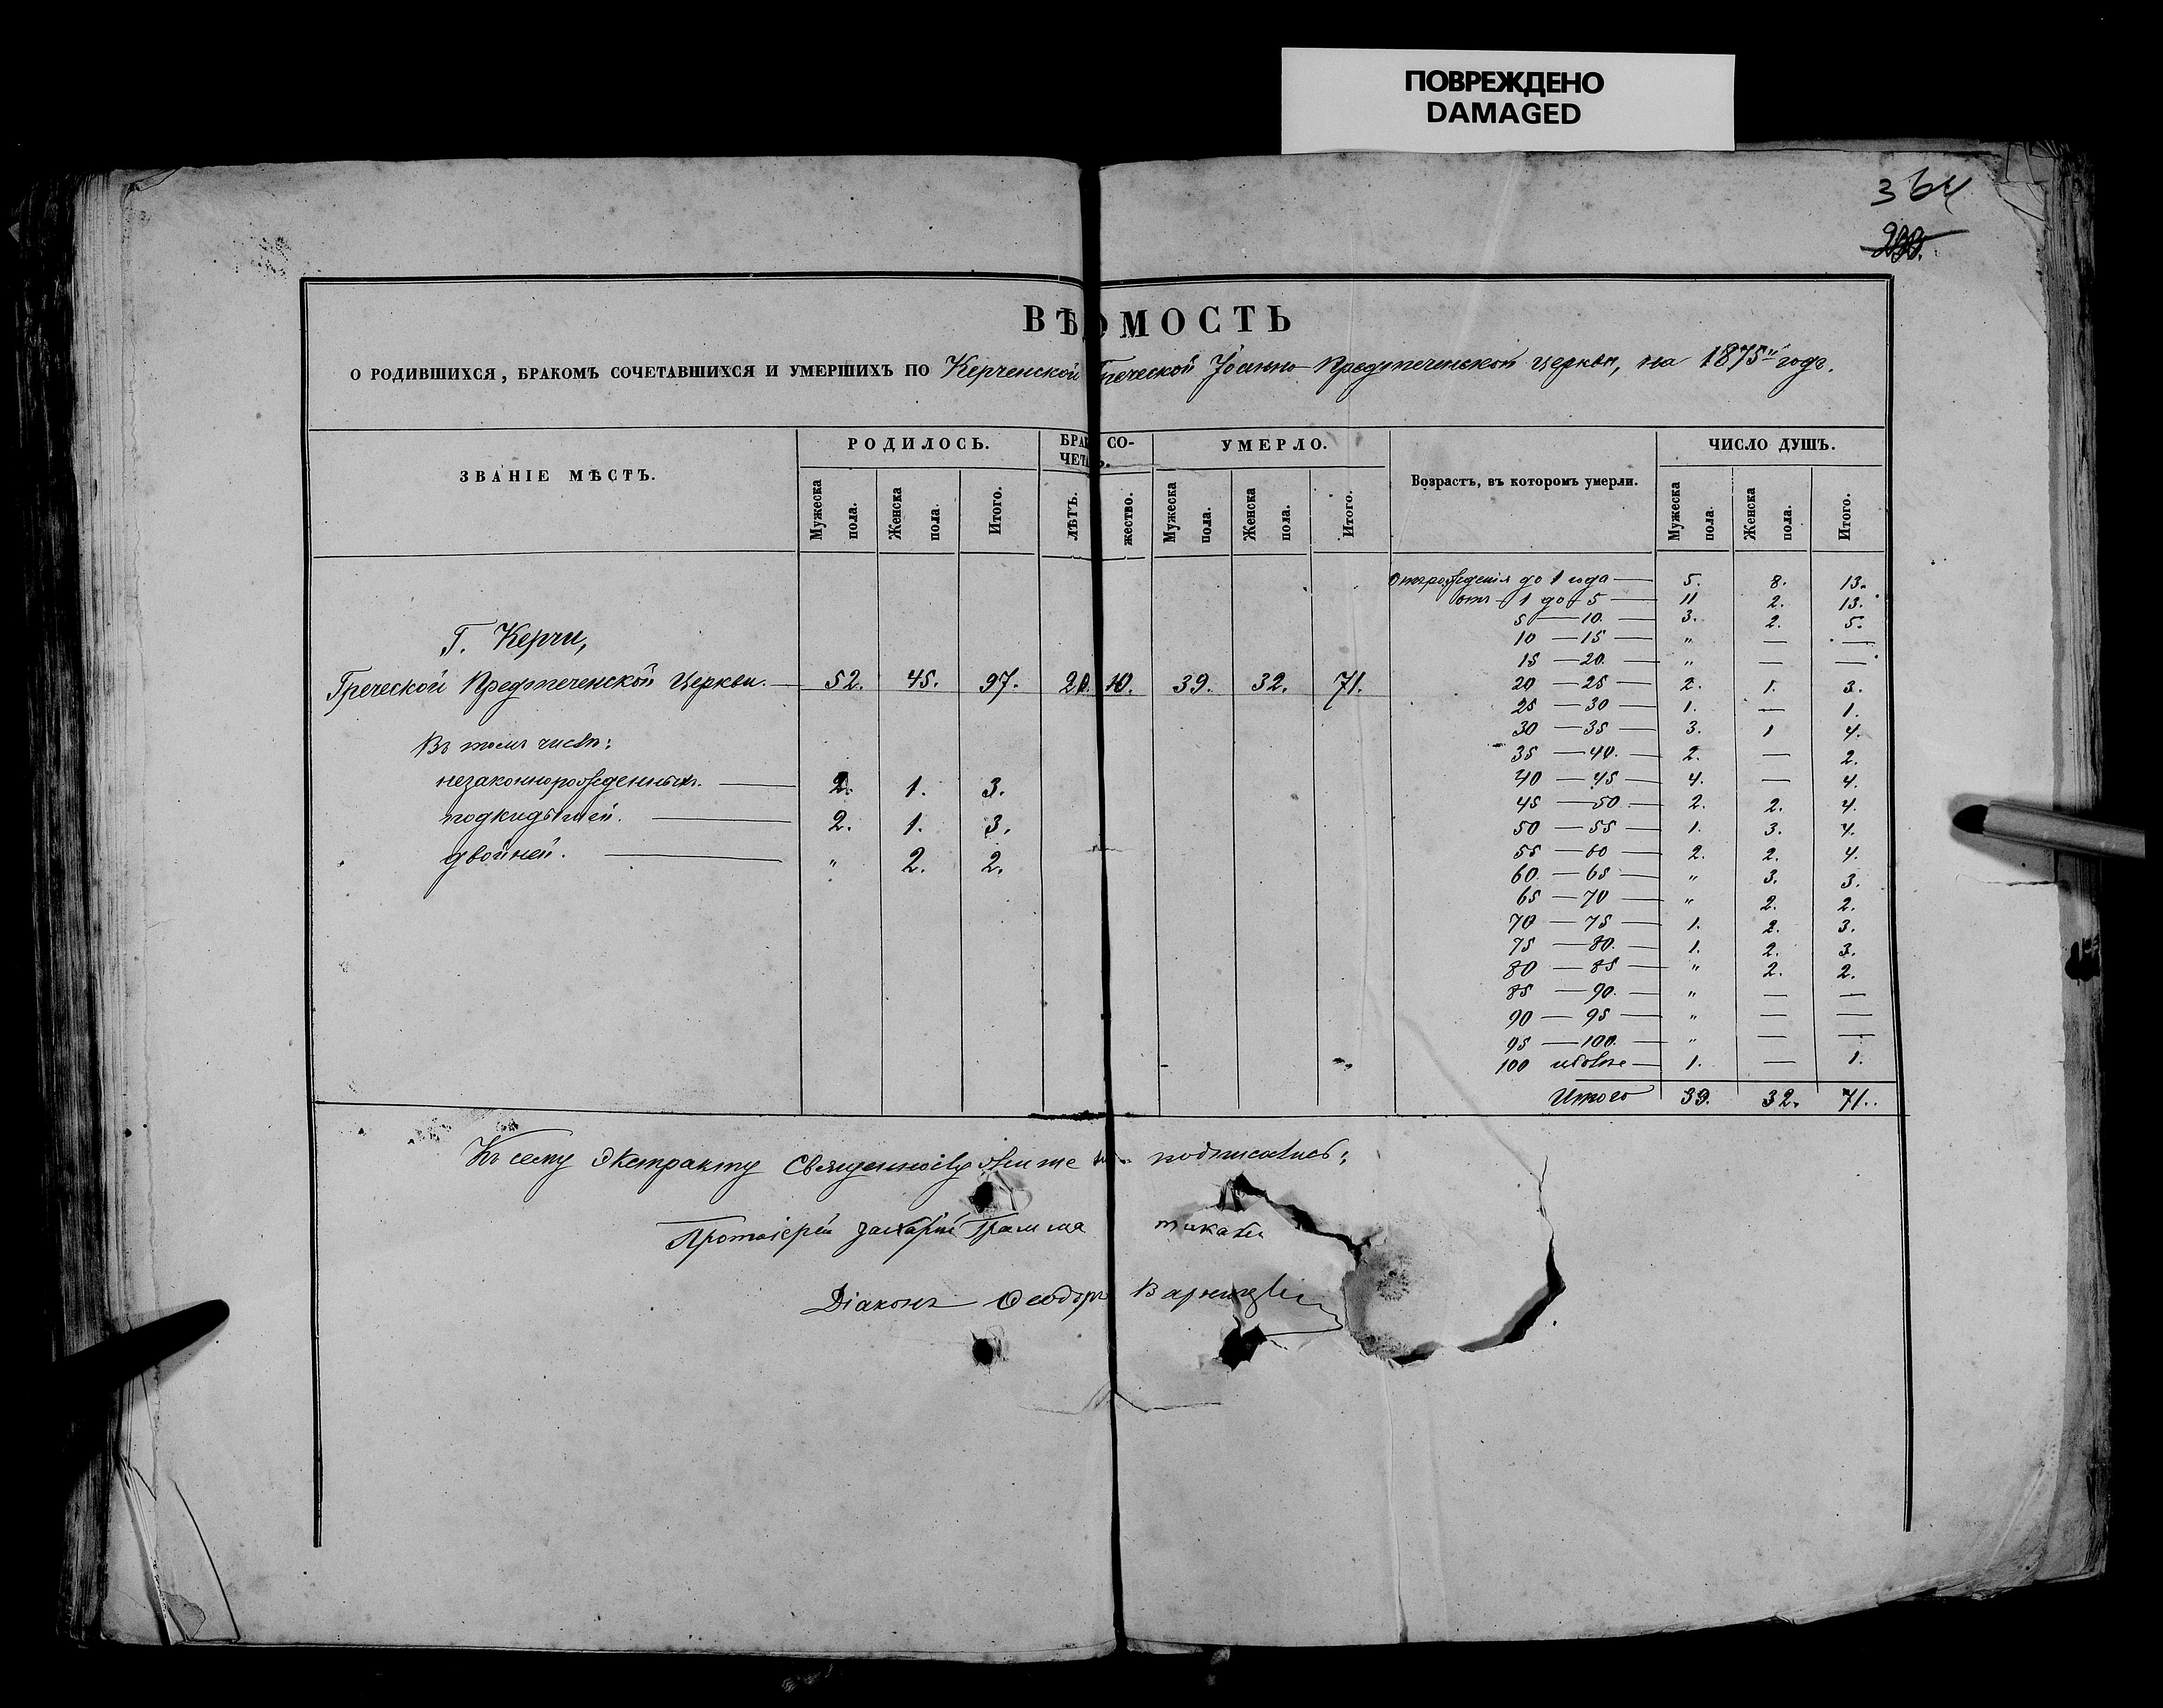 ПОВРЕЖДЕНО
DAMAGED
364
ВѢДОМОСТЬ
О РОДИВШИХСЯ, БРАКОМЪ СОЧЕТАВШИХСЯ И УМЕРШИХЪ ПО Керченской Греческой Іоанно-Предтеченской церкви, на 1875й годъ.
ЗВАНІЕ МѢСТЪ. РОДИЛОСЬ. БРАК СО- УМЕРЛО. Возрастъ, въ которомъ умерли. ЧИСЛО ДУШЪ.
ЧЕТА Ь.
Мужеска пола. Женска пола. Итого. ЛѢТЪ. жество. Мужеска пола. Женска пола. Итого. Мужеска пола. Женска пола. Итого.
Отъ рожденія до 1 года — 5. 8. 13.
отъ 1 до 5 — 11 2. 13.
5 — 10. — 3. 2. 5.
Г. Керчи,
10 — 15 — " — —
15 — 20. — " — —
Греческой Предтеченской Церкви. — 52. 45. 97. 20. 10. 39. 32. 71.
20 — 25 — 2. 1. 3.
25 — 30 — 1. — 1.
30 — 35 — 3. 1 4.
Въ томъ числѣ:
35 — 40. — 2. — 2.
незаконнорожденныхъ. — 2. 1. 3.
40 — 45 — 4. — 4.
45 — 50 — 2. 2. 4.
подкидышей. — 2. 1. 3.
50 — 55 — 1. 3. 4.
двойней. — " 2. 2.
55 — 60 — 2. 2. 4.
60. — 65 — " 3. 3.
65 — 70 — " 2. 2.
70 — 75 — 1. 2. 3.
75 — 80. — 1. 2. 3.
80 — 85 — " 2. 2.
85 — 90. — " — —
90 — 95 — " — —
95 — 100. — " — —
100 и болѣе — 1. — 1.
Итого 39. 32. 71.
Къ сему Экстракту Священнослужите подписались:
Протоіерей Захарій Грамма тикати
Діаконъ Ѳеодоръ